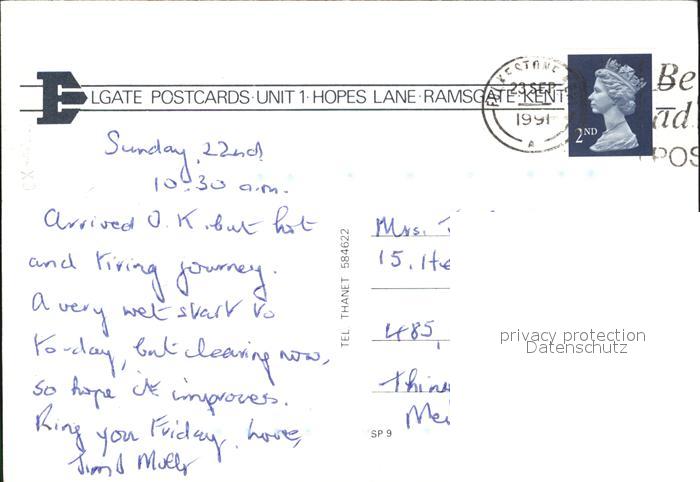 ELGATE POSTCARDS · UNIT 1 · HOPES LANE · RAMSGATE · KENT
FOLKESTONE
23 SEP
1991
A
2ND
Be
ad
POS
Sunday, 22nd
10.30 a.m.
Arrived O.K. but hot
and tiring journey.
A very wet start to
to-day, but clearing now,
so hope it improves.
Ring you Friday, love,
TEL. THANET 584622
SP 9
Mrs.
15, He
485,
privacy protection
Datenschutz